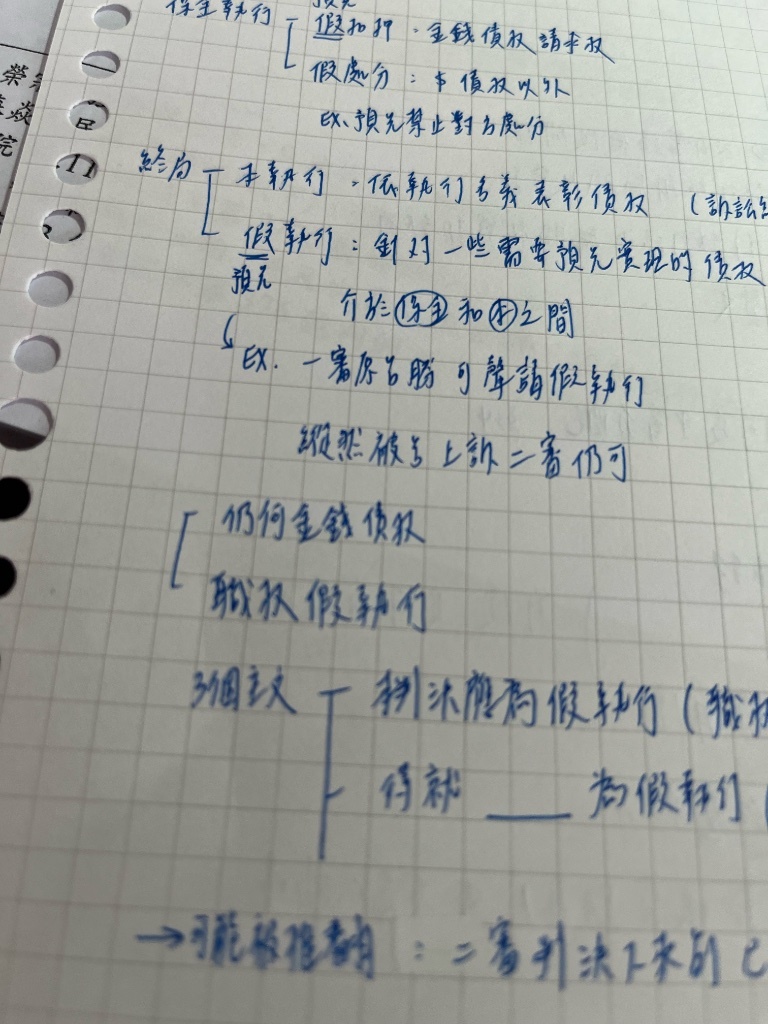 保全執行
預先
假扣押：金錢債权請求权
假處分：本債权以外
EX. 預先禁止對方處分
終局
本執行：依執行名義表彰債权（訴訟
假執行：針對一些需要預先實現的債权
預先
介於保全和本之間
EX. 一審原告勝 可聲請假執行
縱然被告上訴二審仍可
仍何金錢債权
職权假執行
3個主文
判決應為假執行（職权
得就＿＿為假執行（
→可能被推翻：二審判決下來前已
榮
院
民
11